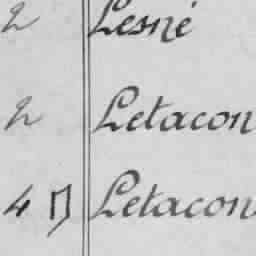 2 Lesné
2 Letacon
4 Letacon